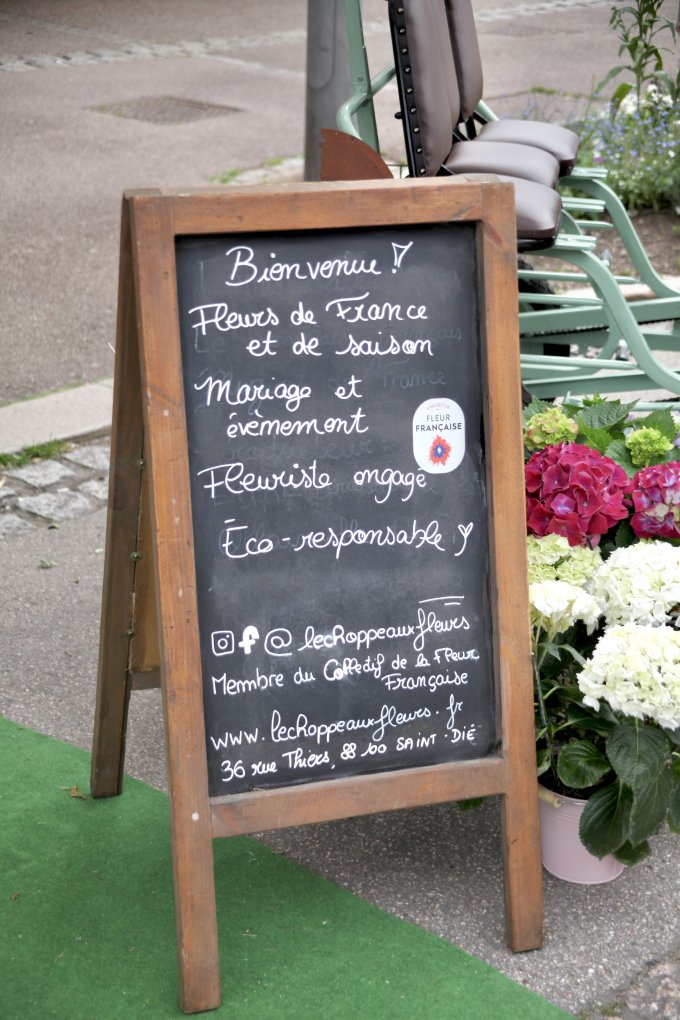 Bienvenue !
Fleurs de France
et de saison
Mariage et
évènement
COLLECTIF
FLEUR
FRANÇAISE
Fleuriste engagé
Éco-responsable
@lechoppeauxfleurs
Membre du Collectif de la Fleur
Française
www.lechoppeauxfleurs.fr
36 rue Thiers, 88100 SAINT-DIÉ